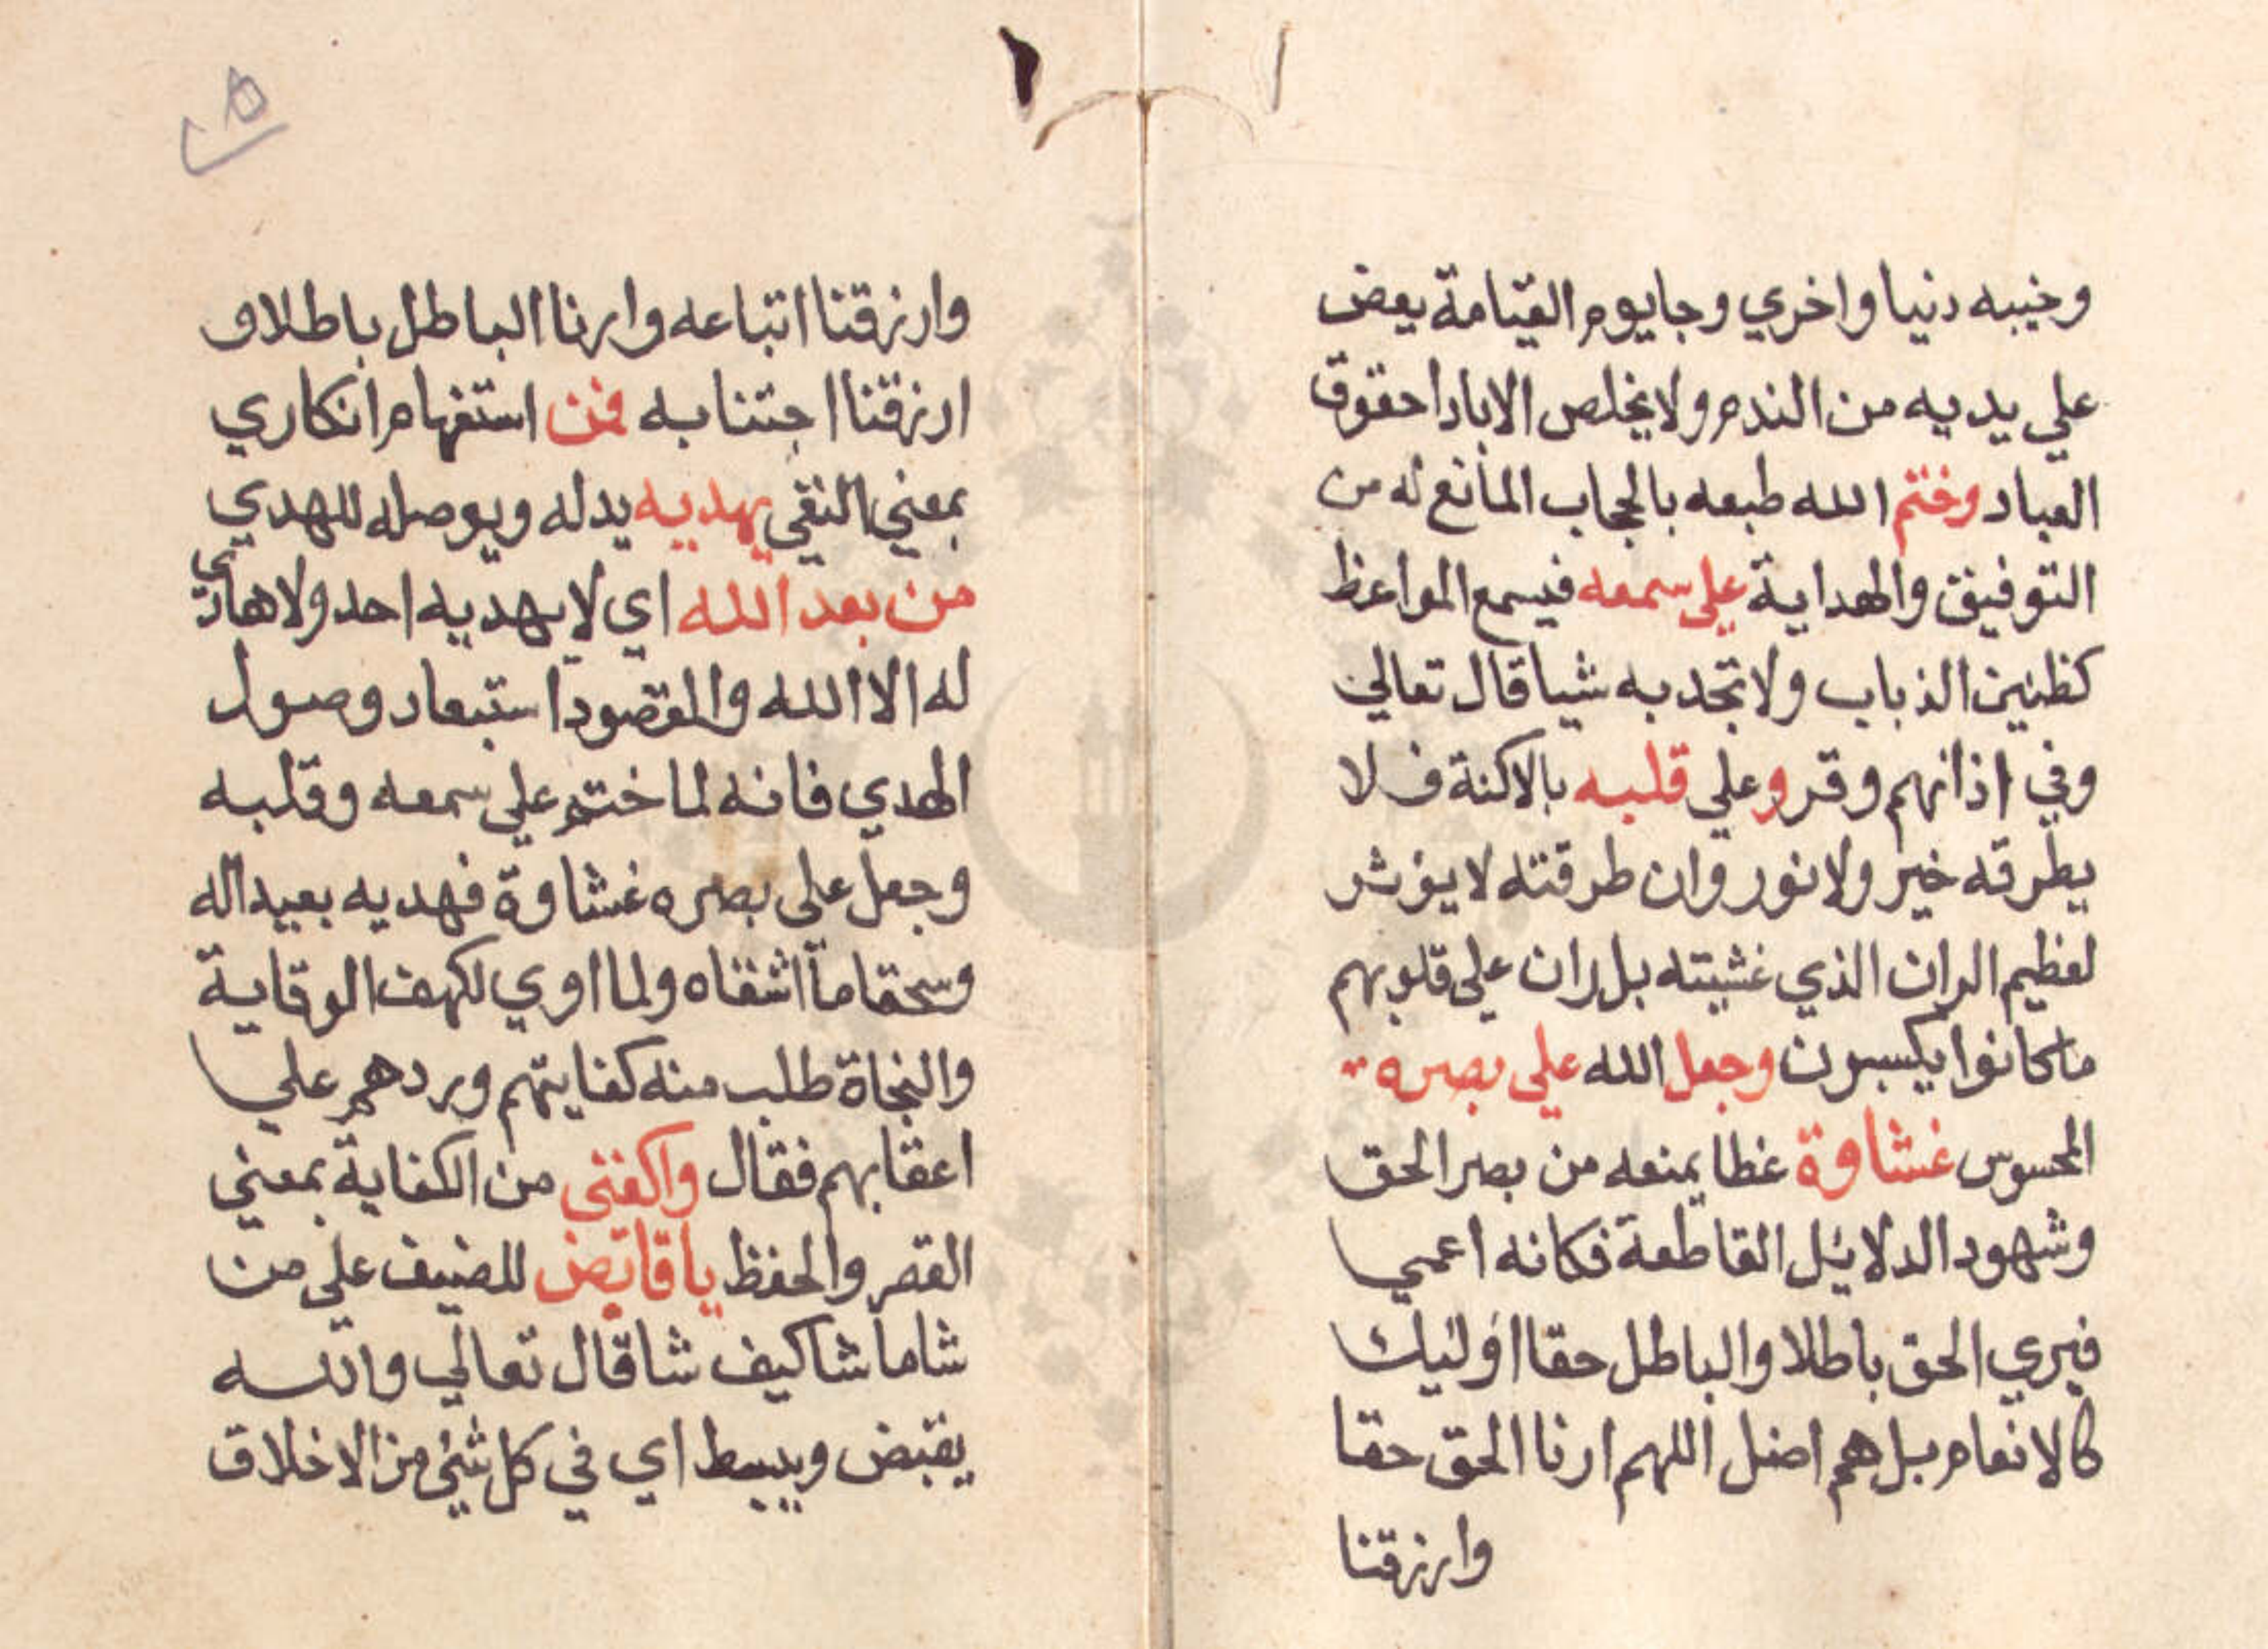 وخيبه دنيا واخري وجا يوم القيامة يعض
علي يديه من الندم ولا يخلص الا باداحقوق
العباد وختم الله طبعه بالحجاب المانع له من
التوفيق والهداية علي سمعه فيسمع المواعظ
كطنين الذباب ولا تجد به شيا قال تعالي
وفي اذانهم وقر وعلي قلبه بالاكنة فلا
يطرقه خير ولا نور وان طرقته لا يؤثر
لعظيم الران الذي غشيته بل ران علي قلوبهم
ما كانوا يكسبون وجعل الله علي بصره
المحسوس غشاوة غطا يمنعه من بصر الحق
وشهود الدلايل القاطعة فكانه اعمي
فيري الحق باطلا والباطل حقا اوليك
كالانعام بل هم اضل اللهم ارنا الحق حقا
وارزقنا
٥
وارزقنا اتباعه وارنا الباطل باطلا و
ارزقنا اجتنابه فمن استفهام انكاري
بمعني النفي يهديه يدله ويوصله للهدي
من بعد الله اي لا يهديه احد ولا هادي
له الا الله والمقصود استبعاد وصول
الهدي فانه لما ختم علي سمعه وقلبه
وجعل علي بصره غشاوة فهديه بعيد اله
وسحقا ما اشقاه ولما اوي لكهف الوقاية
والنجاة طلب منه كفايتهم وردهم علي
اعقابهم فقال واكفني من الكفاية بمعني
القصر والحفظ يا قابض للضيف علي من
شا ما شا كيف شا قال تعالي والله
يقبض ويبسط اي في كل شئ من الاخلاق